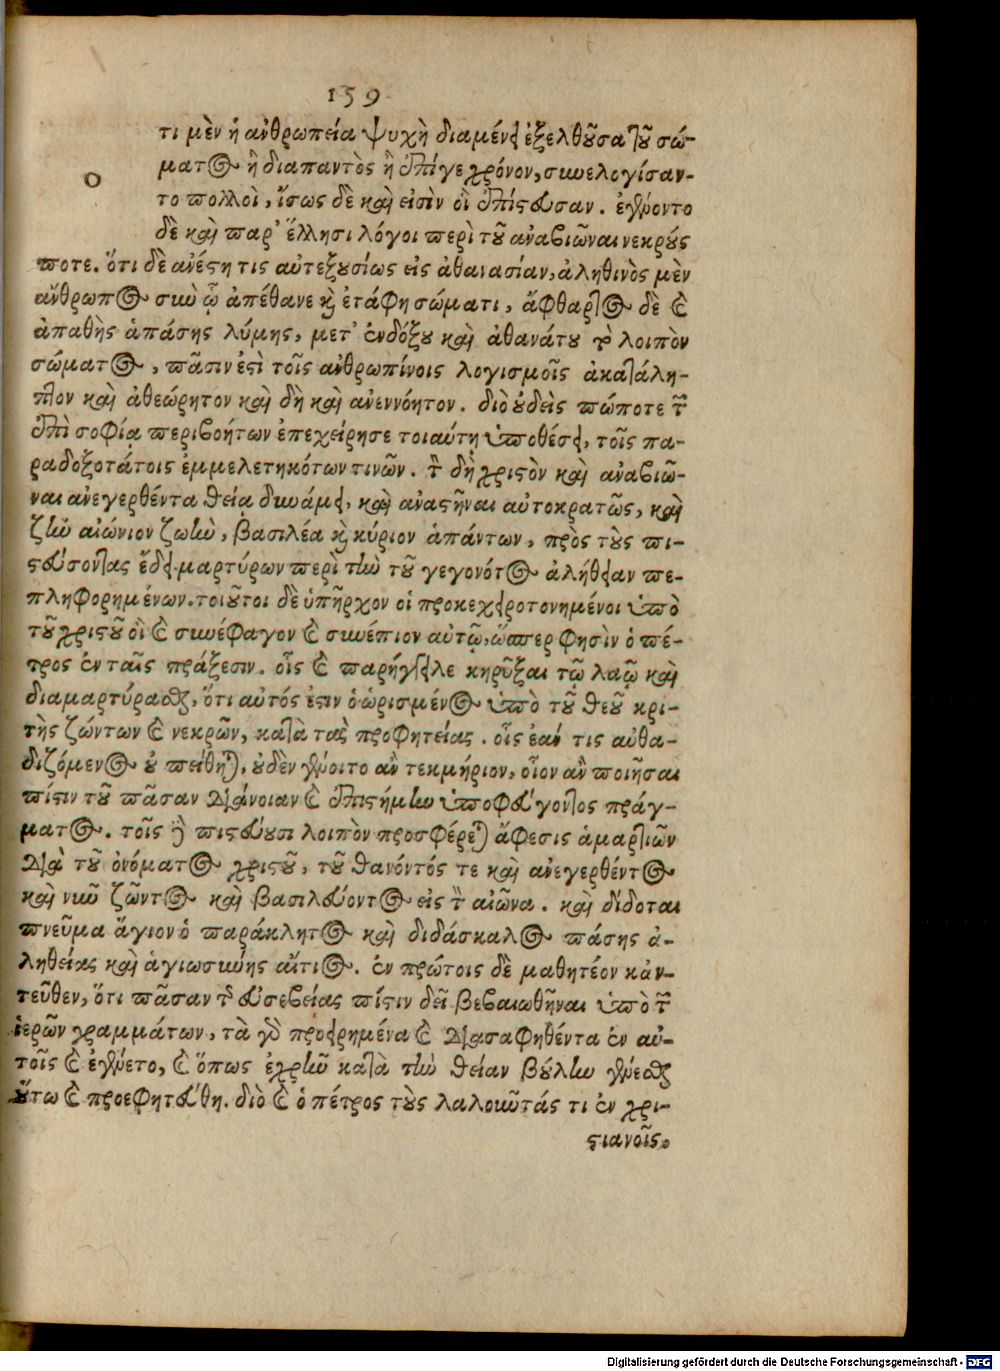 159
ο
τι μὲν ἡ ἀνθρωπεία ψυχὴ διαμένει ἐξελθοῦσα τοῦ σώ-
ματος ἢ διαπαντὸς ἢ ἐπί γε χρόνον, συνελογίσαν-
το πολλοὶ, ἴσως δὲ καὶ εἰσὶν οἳ ἐπίστευσαν. ἐγένοντο
δὲ καὶ παρ' ἕλλησι λόγοι περὶ τοῦ ἀναβιῶναι νεκρούς
ποτε. ὅτι δὲ ἀνέστη τις αὐτεξουσίως εἰς ἀθανασίαν, ἀληθινὸς μὲν
ἄνθρωπος σὺν ᾧ ἀπέθανε καὶ ἐτάφη σώματι, ἄφθαρτος δὲ καὶ
ἀπαθὴς ἁπάσης λύμης, μετ' ἐνδόξου καὶ ἀθανάτου τὸ λοιπὸν
σώματος, πᾶσιν ἐστὶ τοῖς ἀνθρωπίνοις λογισμοῖς ἀκατάλη-
πτον καὶ ἀθεώρητον καὶ δὴ καὶ ἀνεννόητον. διὸ οὐδεὶς πώποτε τῶν
ἐπὶ σοφίᾳ περιβοήτων ἐπεχείρησε τοιαύτῃ ὑποθέσει, τοῖς πα-
ραδοξοτάτοις ἐμμελετηκότων τινῶν. τὸν δὴ χριστὸν καὶ ἀναβιῶ-
ναι ἀνεγερθέντα θείᾳ δυνάμει, καὶ ἀναστῆναι αὐτοκρατῶς, καὶ
ζῆν αἰώνιον ζωὴν, βασιλέα καὶ κύριον ἁπάντων, πρὸς τοὺς πι-
στεύσοντας ἔδει μαρτύρων περὶ τὴν τοῦ γεγονότος ἀλήθειαν πε-
πληφορημένων. τοιοῦτοι δὲ ὑπῆρχον οἱ προκεχειροτονημένοι ὑπὸ
τοῦ χριστοῦ οἳ καὶ συνέφαγον καὶ συνέπιον αὐτῷ, ὥσπερ φησὶν ὁ πέ-
τρος ἐν ταῖς πράξεσιν. οἷς καὶ παρήγγειλε κηρῦξαι τῷ λαῷ καὶ
διαμαρτύρασθαι, ὅτι αὐτός ἐστιν ὁ ὡρισμένος ὑπὸ τοῦ θεοῦ κρι-
τὴς ζώντων καὶ νεκρῶν, κατὰ τὰς προφητείας. οἷς ἐάν τις αὐθα-
διζόμενος οὐ πείθηται, οὐδὲν γένοιτο ἂν τεκμήριον, οἷον ἂν ποιῆσαι
πίστιν τοῦ πᾶσαν διάνοιαν καὶ ἐπιστήμην ὑποφεύγοντος πράγ-
ματος. τοῖς δὲ πιστεύουσι λοιπὸν προσφέρεται ἄφεσις ἁμαρτιῶν
διὰ τοῦ ὀνόματος χριστοῦ, τοῦ θανόντός τε καὶ ἀνεγερθέντος
καὶ νῦν ζῶντος καὶ βασιλεύοντος εἰς τὸν αἰῶνα. καὶ δίδοται
πνεῦμα ἅγιον ὁ παράκλητος καὶ διδάσκαλος πάσης ἀ-
ληθείας καὶ ἁγιωσύνης αἴτιος. ἐν πρώτοις δὲ μαθητέον κἀν-
τεῦθεν, ὅτι πᾶσαν τῆς εὐσεβείας πίστιν δεῖ βεβαιωθῆναι ὑπὸ τῶν
ἱερῶν γραμμάτων, τὰ γὰρ προειρημένα καὶ διασαφηθέντα ἐν αὐ-
τοῖς καὶ ἐγένετο, καὶ ὅπως ἐχρῆν κατὰ τὴν θείαν βούλην γενέσθαι
οὕτω καὶ προεφητεύθη. διὸ καὶ ὁ πέτρος τοὺς λαλοῦντάς τι ἐν χρι-
στιανοῖς
Digitalisierung gefördert durch die Deutsche Forschungsgemeinschaft - DFG